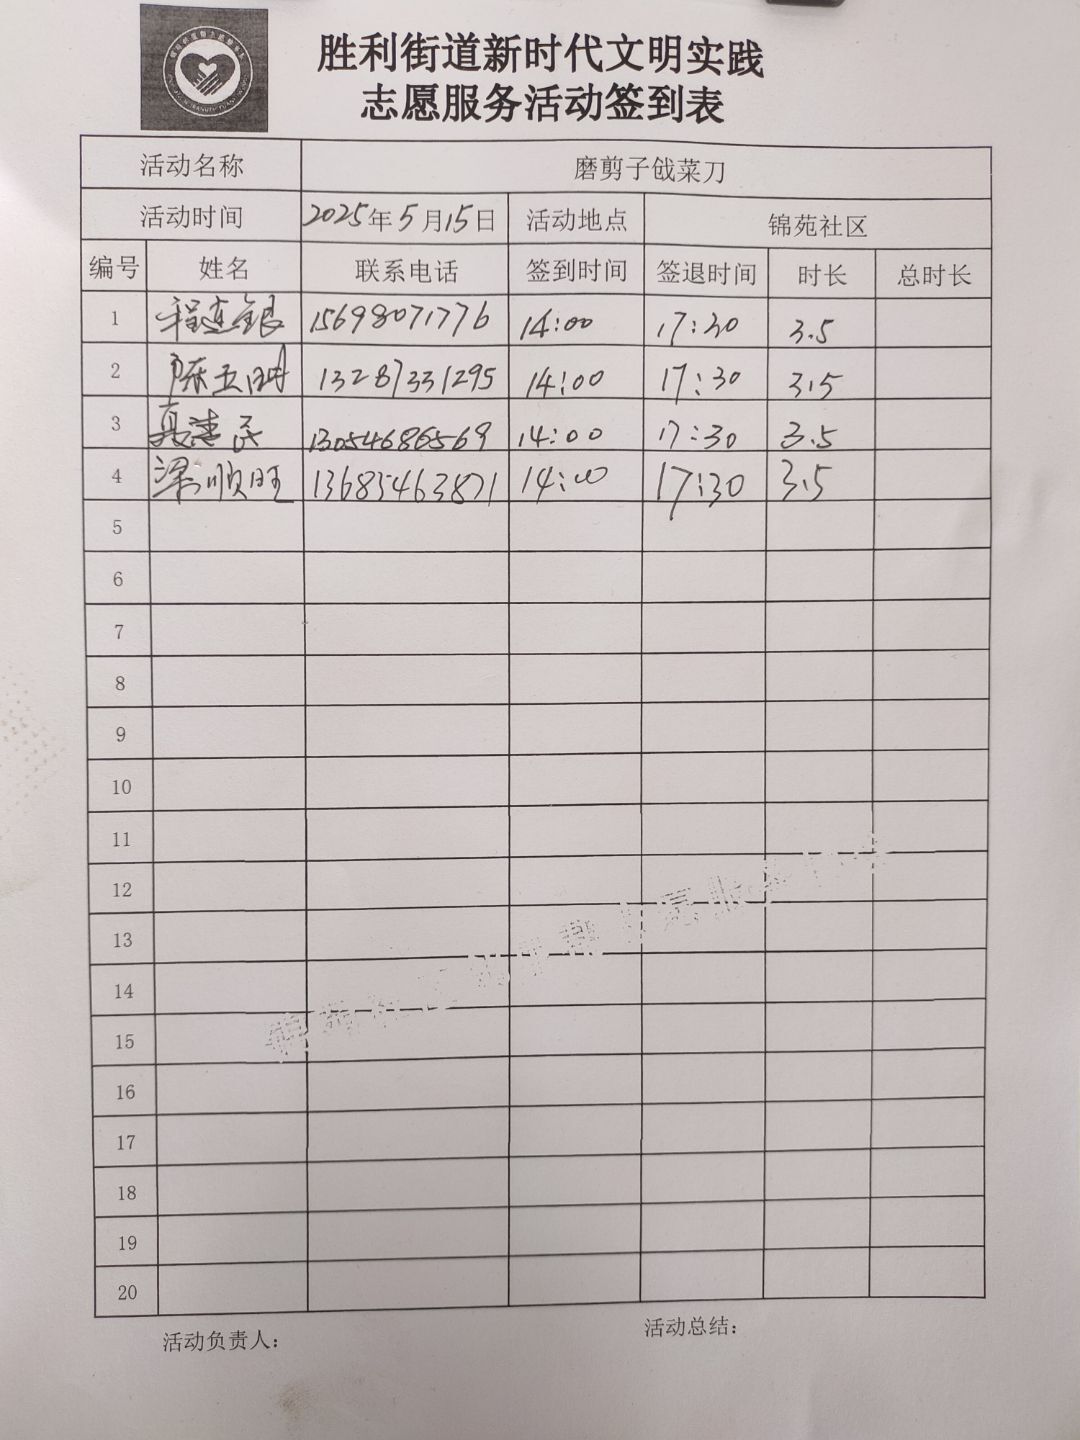 胜利街道新时代文明实践
志愿服务活动签到表
活动名称 磨剪子戗菜刀
活动时间 2025年5月15日 活动地点 锦苑社区
编号 姓名 联系电话 签到时间 签退时间 时长 总时长
1 程连银 15698071776 14:00 17:30 3.5
2 陈玉明 13287331295 14:00 17:30 3.5
3 13054686569 14:00 17:30 3.5
4 梁顺旺 13685463871 14:00 17:30 3.5
5
6
7
8
9
10
11
12
13
14
15
16
17
18
19
20
活动负责人: 活动总结: